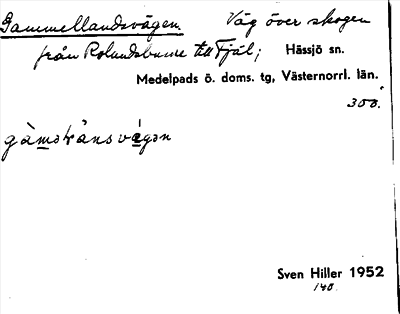 Gammellandsvägen. Väg över skogen
från Rolandsbacke till Fjäl; Hässjö sn.
Medelpads ö. doms. tg, Västernorrl. län.
300.
Sven Hiller 1952
140.